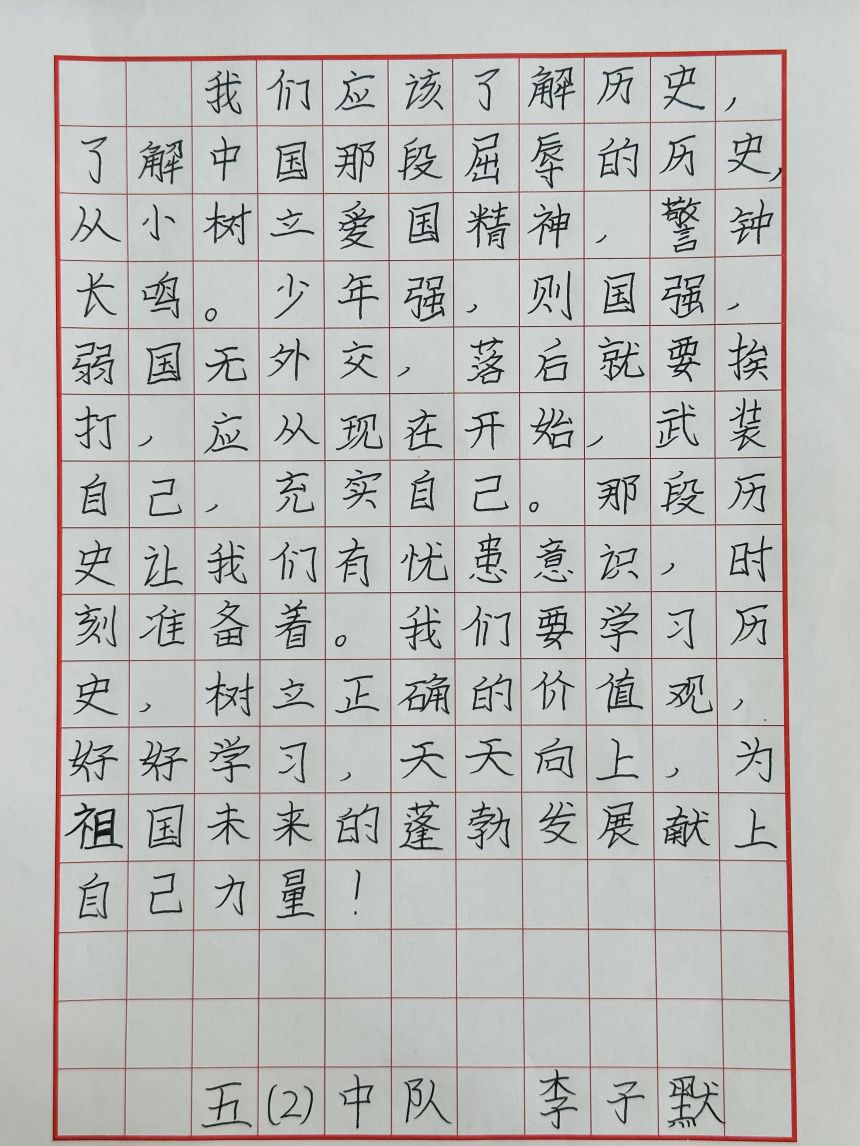 我们应该了解历史，
了解中国那段屈辱的历史，
从小树立爱国精神，警钟
长鸣。少年强，则国强，
弱国无外交，落后就要挨
打，应从现在开始，武装
自己，充实自己。那段历
史让我们有忧患意识，时
刻准备着。我们要学习历
史，树立正确的价值观，
好好学习，天天向上，为
祖国未来的蓬勃发展献上
自己力量！
五(2)中队 李子默